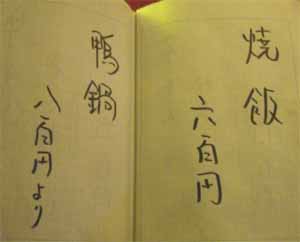 焼飯
六百円
鴨鍋
八百円より